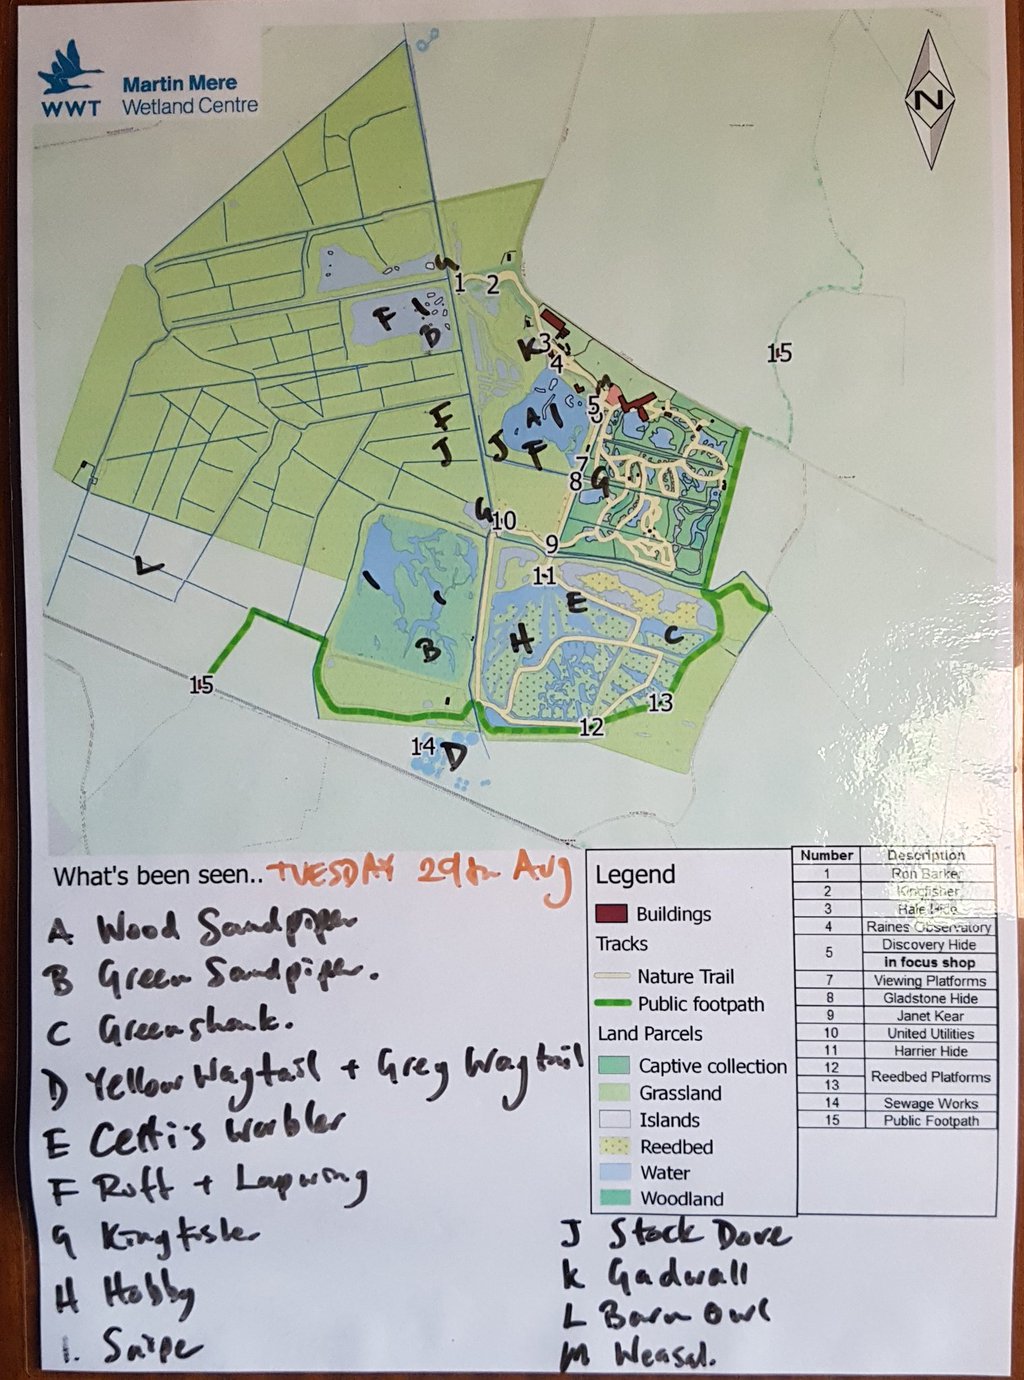 WWT
Martin Mere
Wetland Centre
N
G
1
2
F I
B
K
3
4
15
M
5
6
A I
F
J
J F
7
8
G
G
10
9
11
L
I
I
E
H
C
B
15
13
12
14
D
What's been seen.. TUESDAY 29th Aug
A Wood Sandpiper
B Green Sandpiper.
C Greenshank.
D Yellow Wagtail + Grey Wagtail
E Cetti's Warbler
F Ruff + Lapwing
G Kingfisher
H Hobby
I. Snipe
J Stock Dove
K Gadwall
L Barn Owl
M Weasel.
Legend
Buildings
Tracks
Nature Trail
Public footpath
Land Parcels
Captive collection
Grassland
Islands
Reedbed
Water
Woodland
Number Description
1 Ron Barker
2 Kingfisher
3 Hale Hide
4 Raines Observatory
5 Discovery Hide
in focus shop
7 Viewing Platforms
8 Gladstone Hide
9 Janet Kear
10 United Utilities
11 Harrier Hide
12
13 Reedbed Platforms
14 Sewage Works
15 Public Footpath